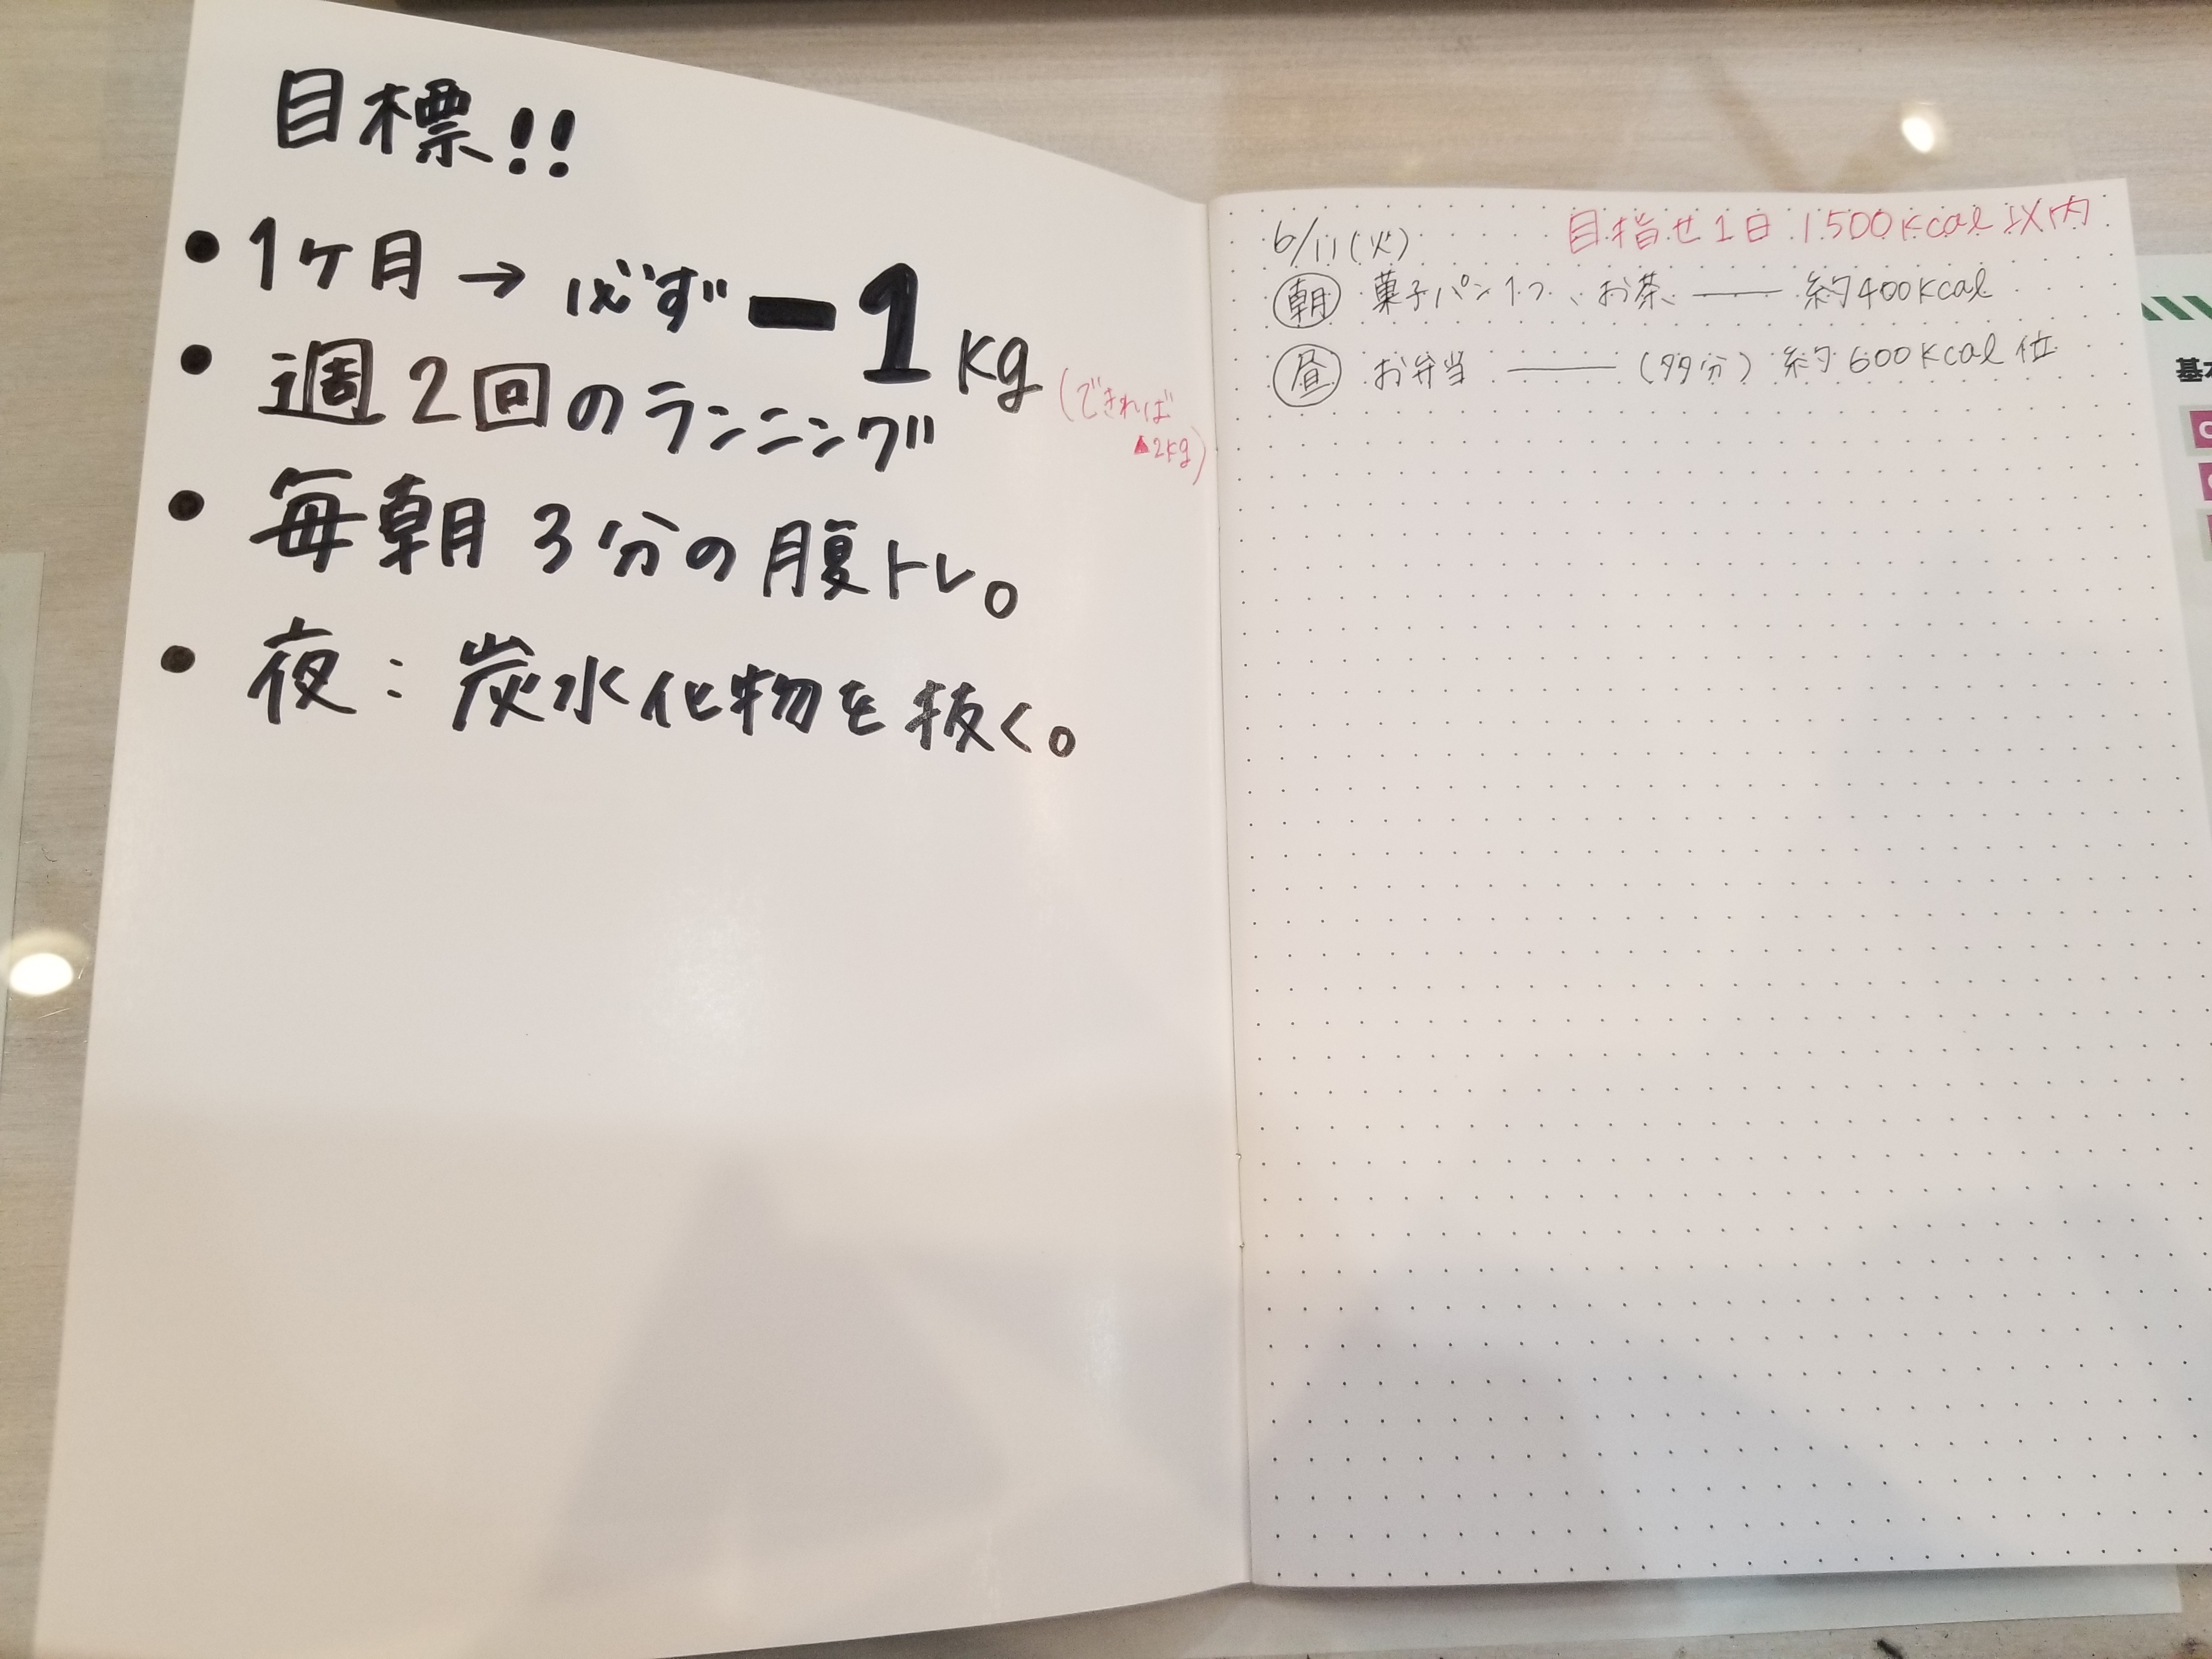 目標!!
・1ヶ月→必ず −1kg
(できれば
▲2kg)
・週2回のランニング
・毎朝3分の腹トレ。
・夜:炭水化物を抜く。
6/11(火) 目指せ1日1500kcal以内
朝 菓子パン1つ、お茶 ―― 約400kcal
昼 お弁当 ―― (多分)約600kcal位
基本